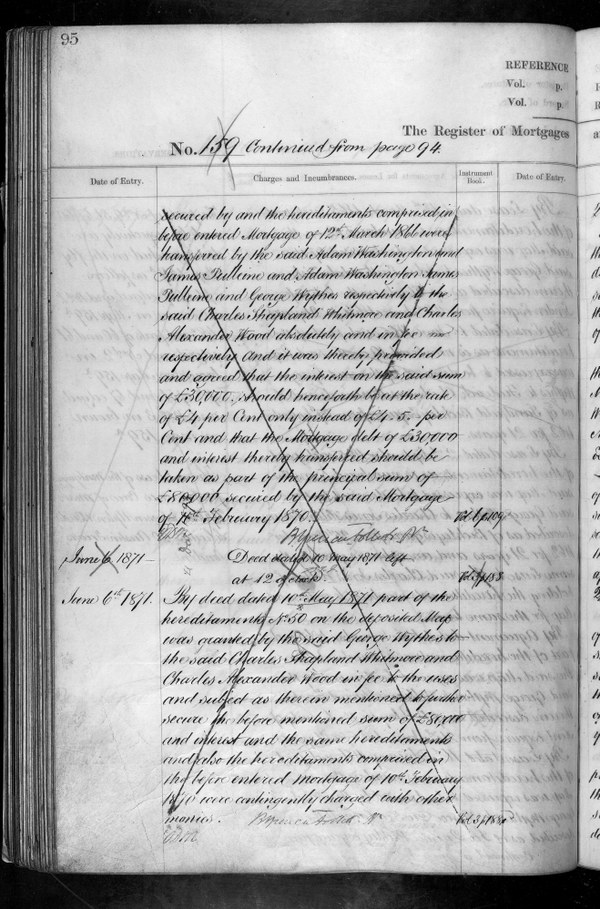 95
REFERENCE
Vol. p.
Vol. p.
The Register of Mortgages
No. 159 Continued from page 94.
Date of Entry. Charges and Incumbrances. Instrument Book. Date of Entry.
secured by and the hereditaments comprised in
before entered Mortgage of 12th March 1866 were
transferred by the said Adam Washington and
James Pulleine and Adam Washington James
Pulleine and George Wythes respectively to the
said Charles Shapland Whitmore and Charles
Alexander Wood absolutely and in fee
respectively And it was thereby provided
and agreed that the interest on the said sum
of £30,000. should henceforth be at the rate
of £4 per Cent only instead of £4. 5. per
Cent and that the Mortgage debt of £30,000
and interest thereby transferred should be
taken as part of the principal sum of
£80,000 secured by the said Mortgage
of 10th February 1870.
June 6 1871 Deed dated 10 May 1871 left
at 12 o'clock Vol. 3 p 188
June 6th 1871. By deed dated 10th May 1871 part of the
hereditaments No. 50 on the deposited Map
was granted by the said George Wythes to
the said Charles Shapland Whitmore and
Charles Alexander Wood in fee to the uses
and subject as therein mentioned to further
secure the before mentioned sum of £80,000
and interest and the same hereditaments
and also the hereditaments comprised in
the before entered mortgage of 10th February
1870 were contingently charged with other
monies. Vol. 3 p 188